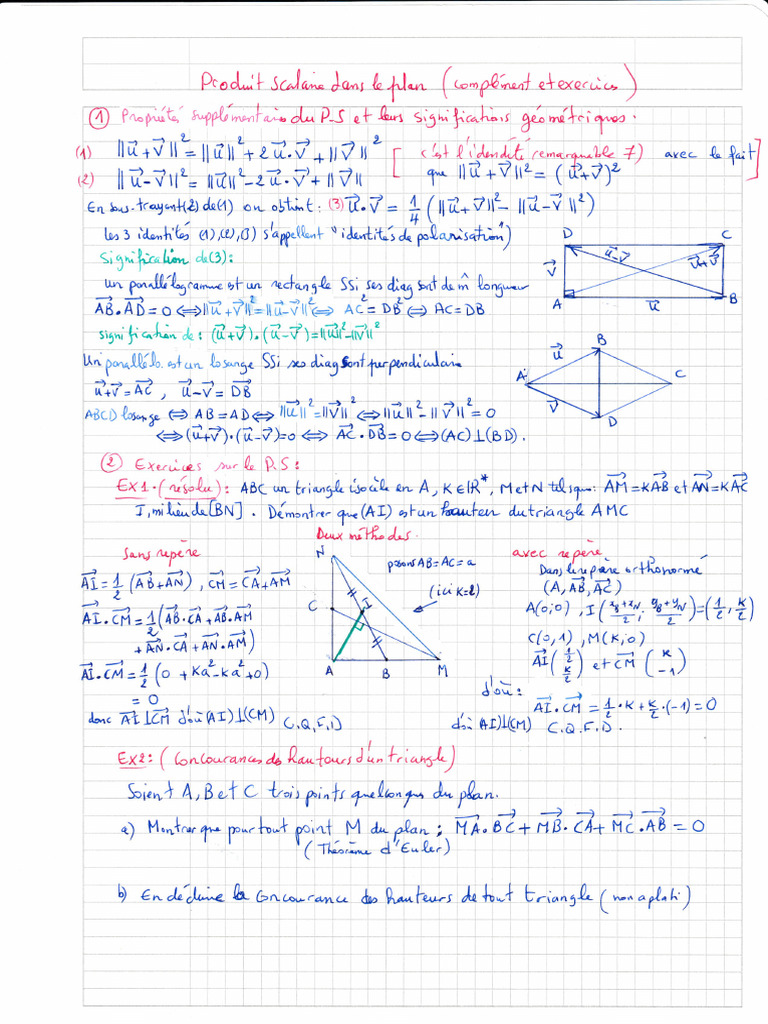 Produit scalaire dans le plan (complément et exercices)
① Propriétés supplémentaires du P.S et leurs significations géométriques.
(1) ||u⃗+v⃗||² = ||u⃗||² + 2u⃗.v⃗ + ||v⃗||² [c'est l'idendité remarquable 7) avec le fait
(2) ||u⃗-v⃗||² = ||u⃗||² - 2u⃗.v⃗ + ||v⃗|| que ||u⃗+v⃗||² = (u⃗+v⃗)²]
En sous-trayant (2) de (1) on obtient : (3) u⃗.v⃗ = 1/4 (||u⃗+v⃗||² - ||u⃗-v⃗||²)
Les 3 identités (1),(2),(3) s'appellent "identités de polarisation")
Signification de (3) :
Un parallélogramme est un rectangle SSi ses diag sont de m̂ longueur
AB⃗.AD⃗ = 0 ⟺ ||u⃗+v⃗||² = ||u⃗-v⃗||² ⟺ AC² = DB² ⟺ AC = DB
D C
u⃗-v⃗ u⃗+v⃗
v⃗
A u⃗ B
signification de : (u⃗+v⃗).(u⃗-v⃗) = ||u⃗||² - ||v⃗||²
Un parallélo. est un losange SSi ses diag sont perpendiculaire
u⃗+v⃗ = AC⃗ , u⃗-v⃗ = DB⃗
ABCD losange ⟺ AB = AD ⟺ ||u⃗||² = ||v⃗||² ⟺ ||u⃗||² - ||v⃗||² = 0
⟺ (u⃗+v⃗).(u⃗-v⃗) = 0 ⟺ AC⃗.DB⃗ = 0 ⟺ (AC)⊥(BD).
B
u⃗
A C
v⃗
D
② Exercices sur le P.S :
EX1.(résolu) : ABC un triangle isocèle en A, K∈ℝ*, M et N tels que : AM⃗ = KAB⃗ et AN⃗ = KAC⃗
I, milieu de [BN]. Démontrer que (AI) est un hauteur du triangle AMC
Deux méthodes.
sans repère
AI⃗ = 1/2 (AB⃗+AN⃗) , CM⃗ = CA⃗+AM⃗
AI⃗.CM⃗ = 1/2 (AB⃗.CA⃗ + AB⃗.AM⃗
+ AN⃗.CA⃗ + AN⃗.AM⃗)
AI⃗.CM⃗ = 1/2 (0 + Ka² - Ka² + 0)
= 0
donc AI⃗⊥CM⃗ d'où (AI)⊥(CM) C.Q.F.D
N
posons AB = AC = a
(ici K=2)
C I
A B M
avec repère
Dans le repère orthonormé
(A, AB⃗, AC⃗)
A(0;0) , I((x_B+x_N)/2 ; (y_B+y_N)/2) = (1/2, K/2)
C(0,1) , M(K,0)
AI⃗ (1/2 K/2) et CM⃗ (K -1)
d'où :
AI⃗.CM⃗ = 1/2.K + K/2.(-1) = 0
d'où (AI)⊥(CM) C.Q.F.D.
EX2 : (Concourance des hauteurs d'un triangle)
Soient A, B et C trois points quelconques du plan.
a) Montrer que pour tout point M du plan ; MA⃗.BC⃗ + MB⃗.CA⃗ + MC⃗.AB⃗ = 0
(Théorème d'Euler)
b) En déduire la concourance des hauteurs de tout triangle (non aplati)